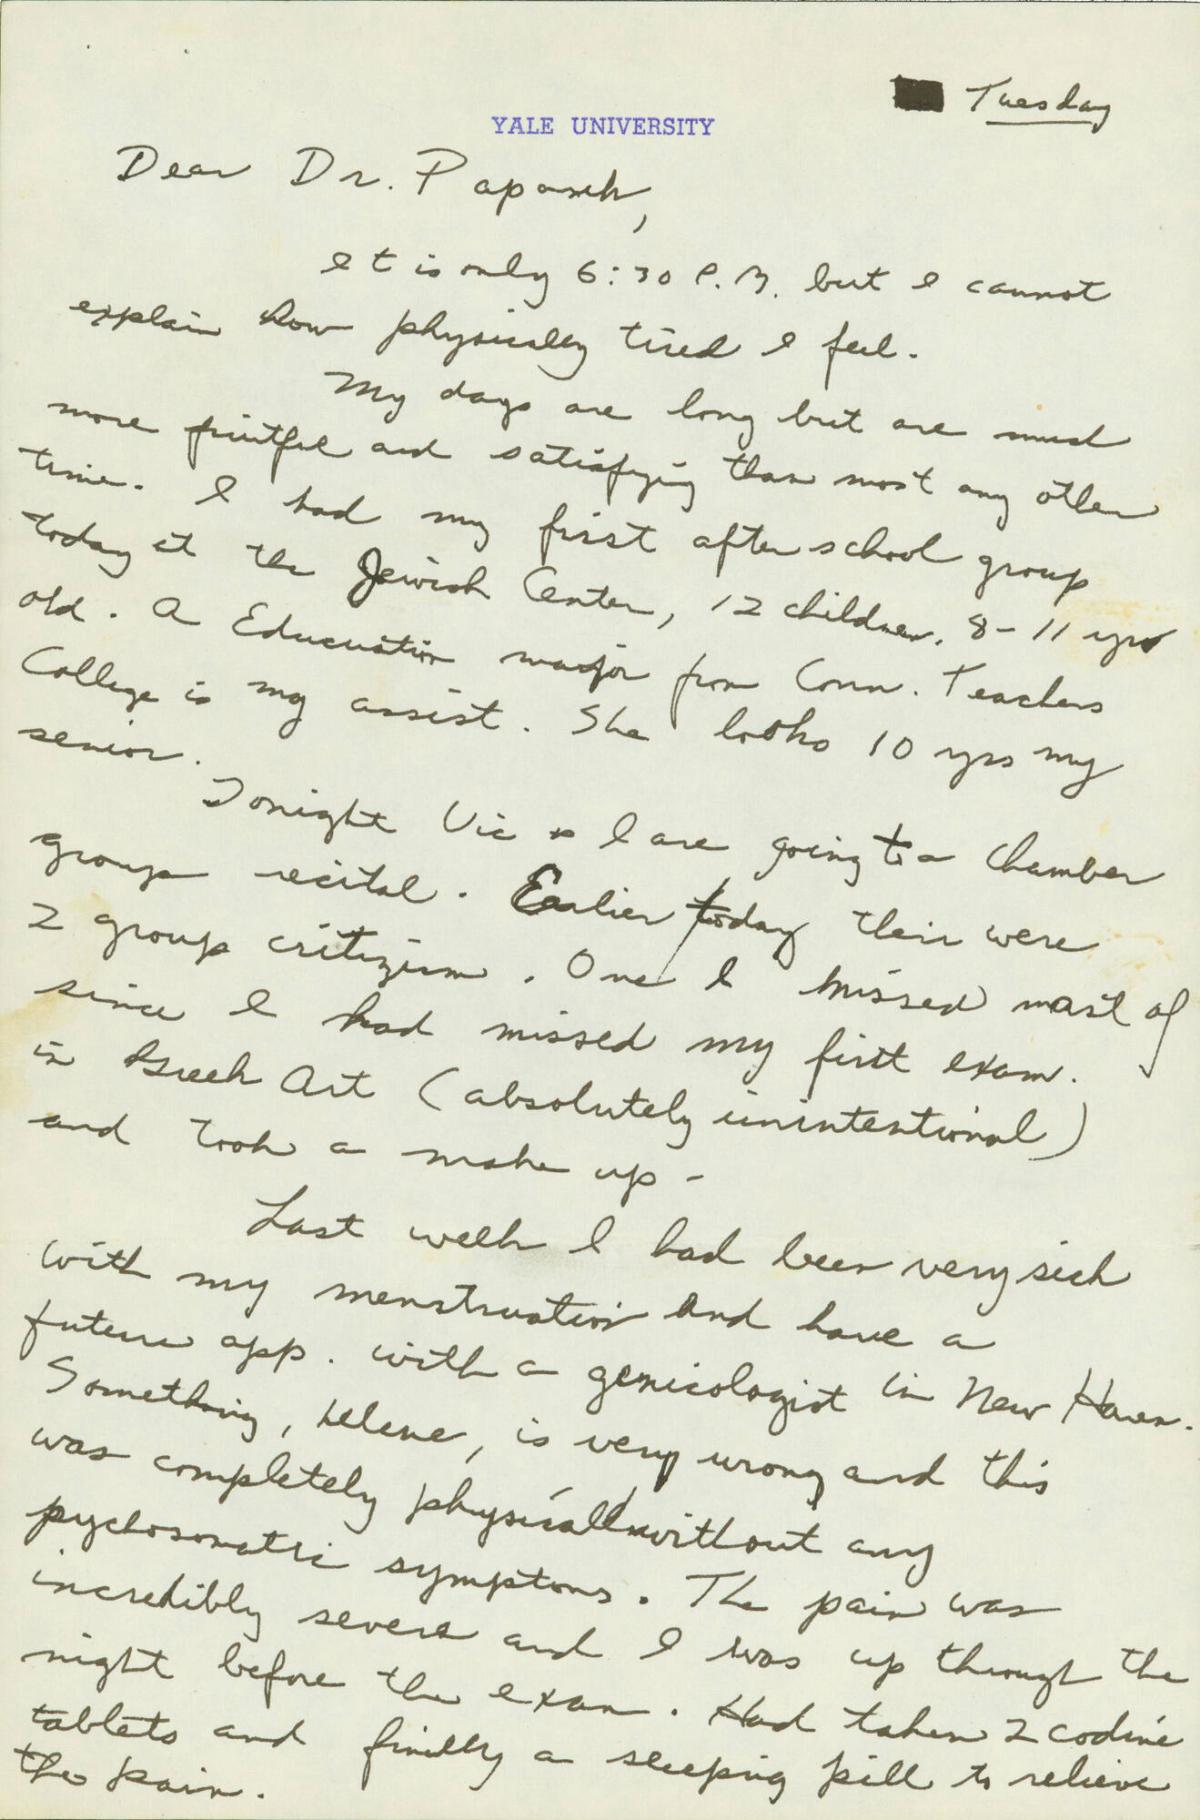 Tuesday
YALE UNIVERSITY
Dear Dr. Papanek,
It is only 6:30 P.M. but I cannot
explain how physically tired I feel.
My days are long but are much
more fruitful and satisfying than most any other
time. I had my first after school group
today at the Jewish Center, 12 children, 8-11 yrs
old. A Educuation major from Conn. Teachers
College is my assist. She looks 10 yrs my
senior.
Tonight Vic & I are going to a Chamber
group recital. Earlier today their were
2 group critizism. One I missed most of
since I had missed my first exam.
in Greek Art (absolutely unintentional)
and took a make up -
Last week I had been very sick
with my menstruation and have a
future app. with a genicologist in New Haven.
Something, Helene, is very wrong and this
was completely physical without any
pychosomatic symptoms. The pain was
incredibly severe and I was up through the
night before the exam. Had taken 2 codine
tablets and finelly a sleeping pill to relieve
the pain.